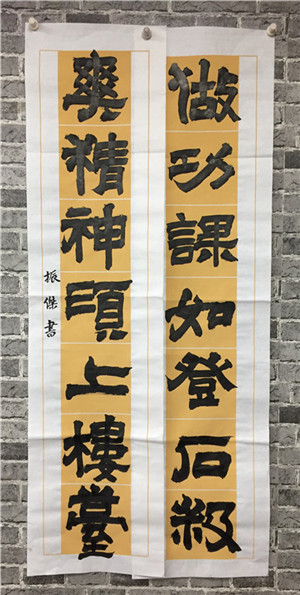 做功課如登石級
爽精神須上樓臺
振傑書